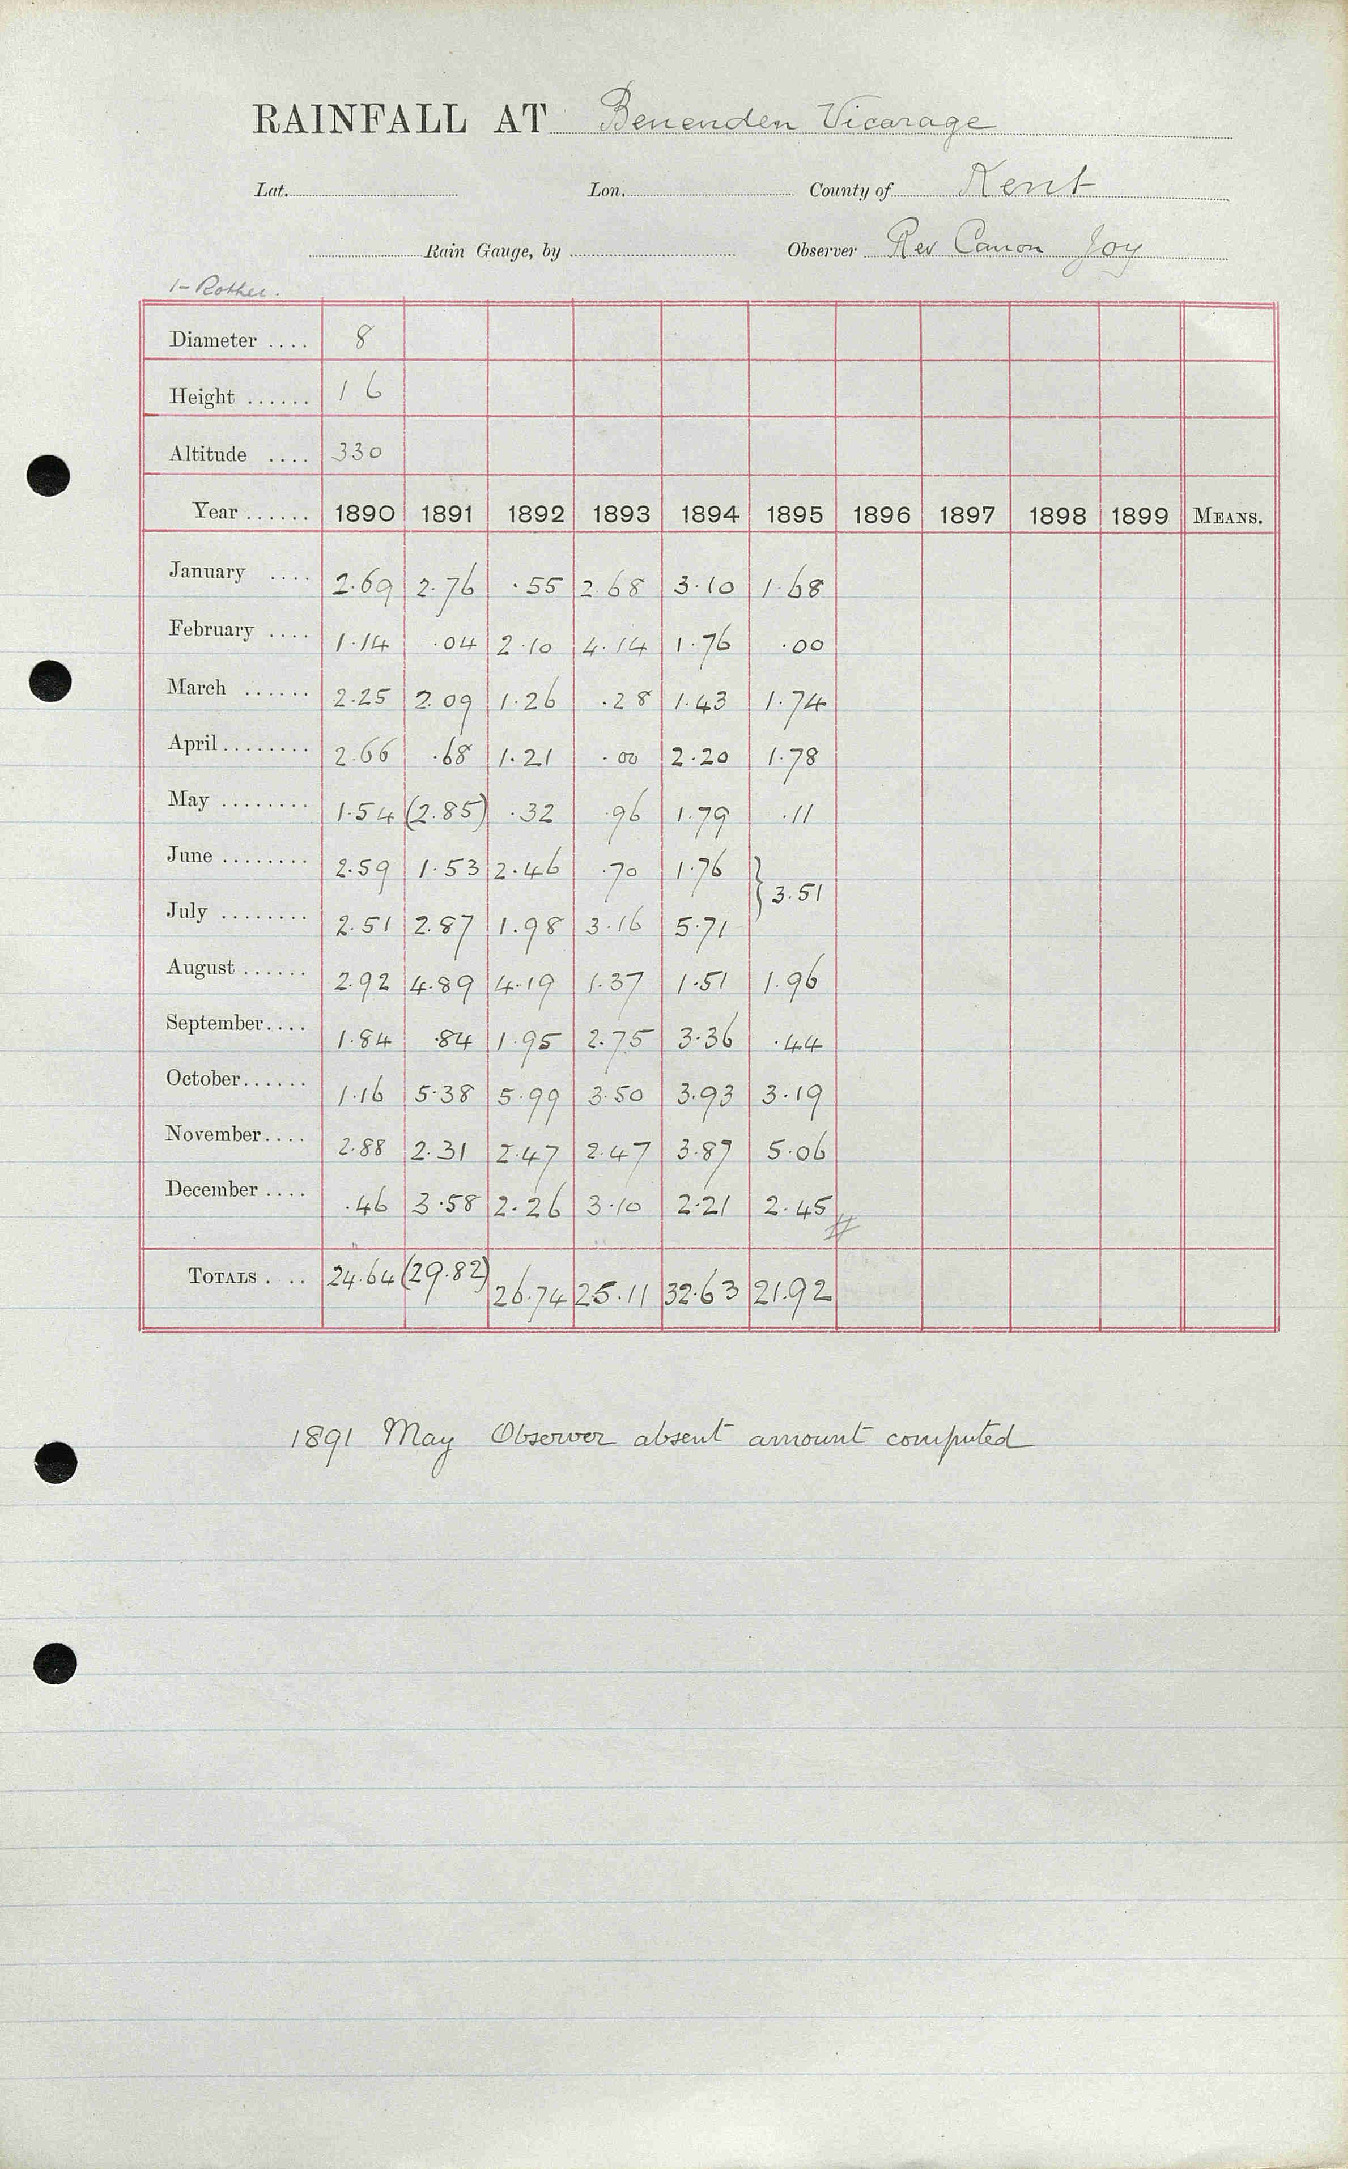 RAINFALL AT Benenden Vicarage
Lat. Lon. County of Kent
Rain Gauge, by Observer Rev Canon Joy
1-Rother.
Diameter .... 8
Height ...... 1 6
Altitude .... 330
Year ...... 1890 1891 1892 1893 1894 1895 1896 1897 1898 1899 MEANS.
January .... 2.69 2.76 .55 2.68 3.10 1.68
February .... 1.14 .04 2.10 4.14 1.76 .00
March ...... 2.25 2.09 1.26 .28 1.43 1.74
April ........ 2.66 .68 1.21 .00 2.20 1.78
May ........ 1.54 (2.85) .32 .96 1.79 .11
June ........ 2.59 1.53 2.46 .70 1.76
} 3.51
July ........ 2.51 2.87 1.98 3.16 5.71
August ...... 2.92 4.89 4.19 1.37 1.51 1.96
September.... 1.84 .84 1.95 2.75 3.36 .44
October...... 1.16 5.38 5.99 3.50 3.93 3.19
November.... 2.88 2.31 2.47 2.47 3.87 5.06
December .... .46 3.58 2.26 3.10 2.21 2.45
#
TOTALS . .. 24.64 (29.82) 26.74 25.11 32.63 21.92
1891 May Observer absent amount computed